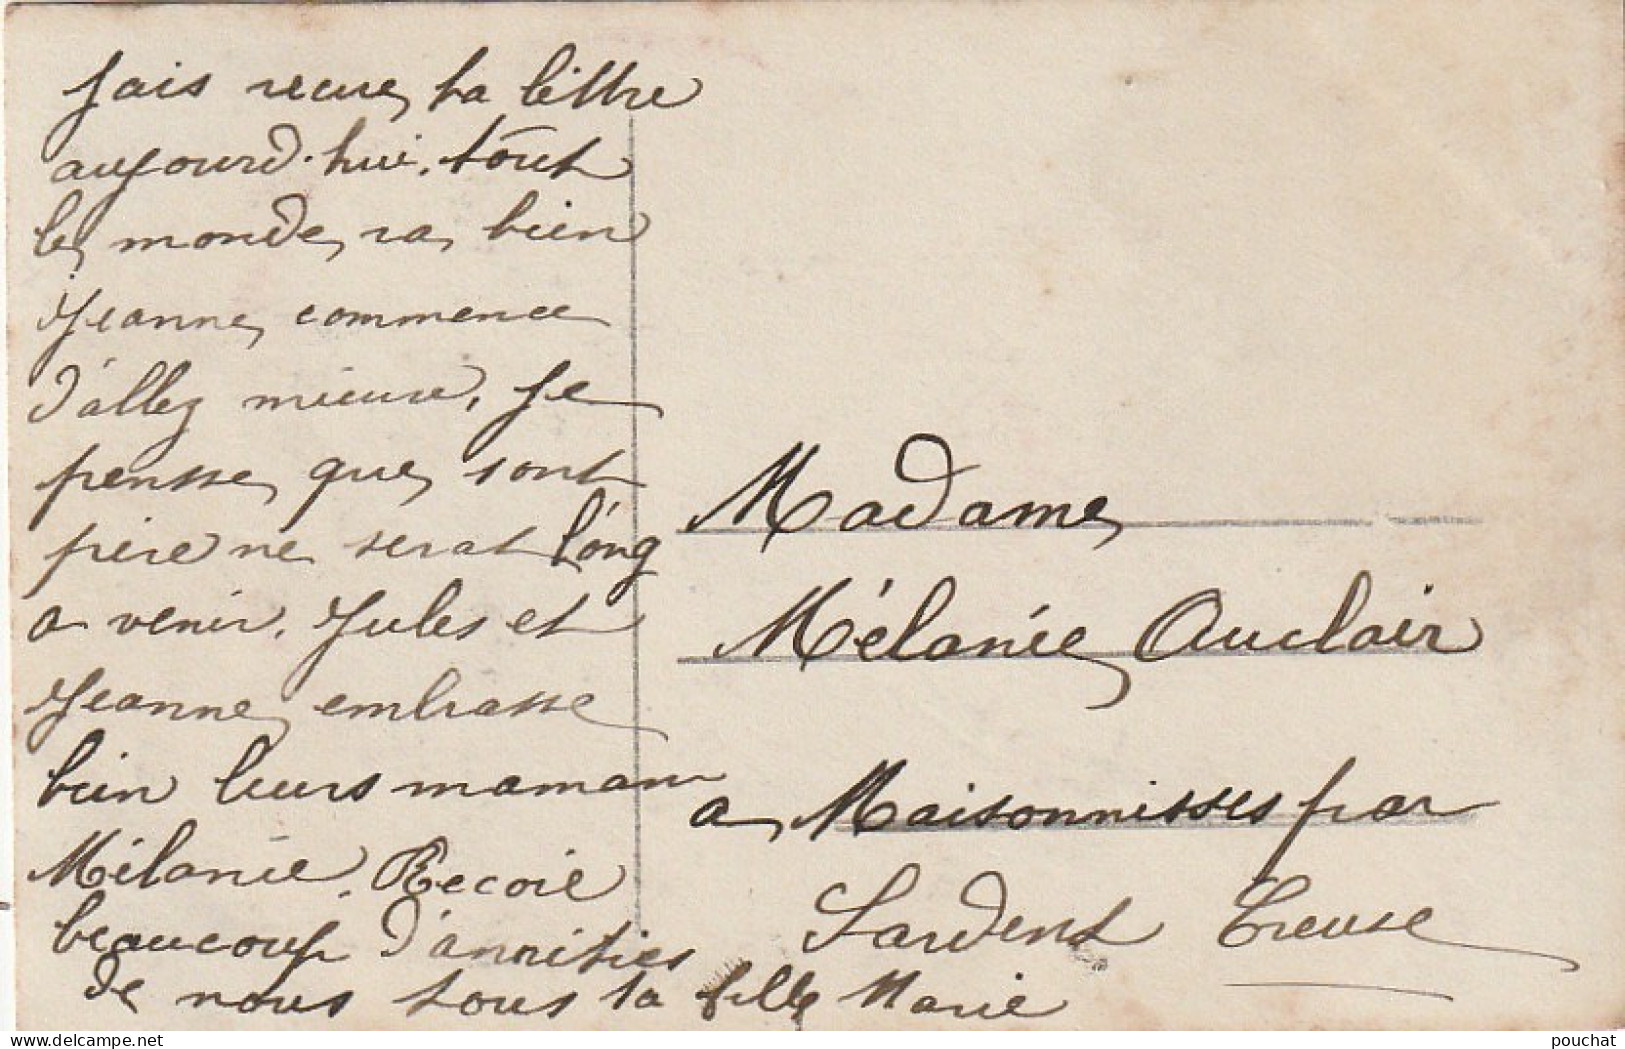 Jais recue ta lettre
aujourd'hui. tout
le monde va bien
Jeanne commence
d'allez mieux. Je
pensse que sont
père ne serat long
a venir. Jules et
Jeanne embrasse
bien leurs maman
Mélanie. Recoie
beaucoup d'amitiés
de nous tous ta fille Marie
Madame
Mélanie Auclair
a Maisonnisses par
Sardent Creuse
delcampe.net
pouchat